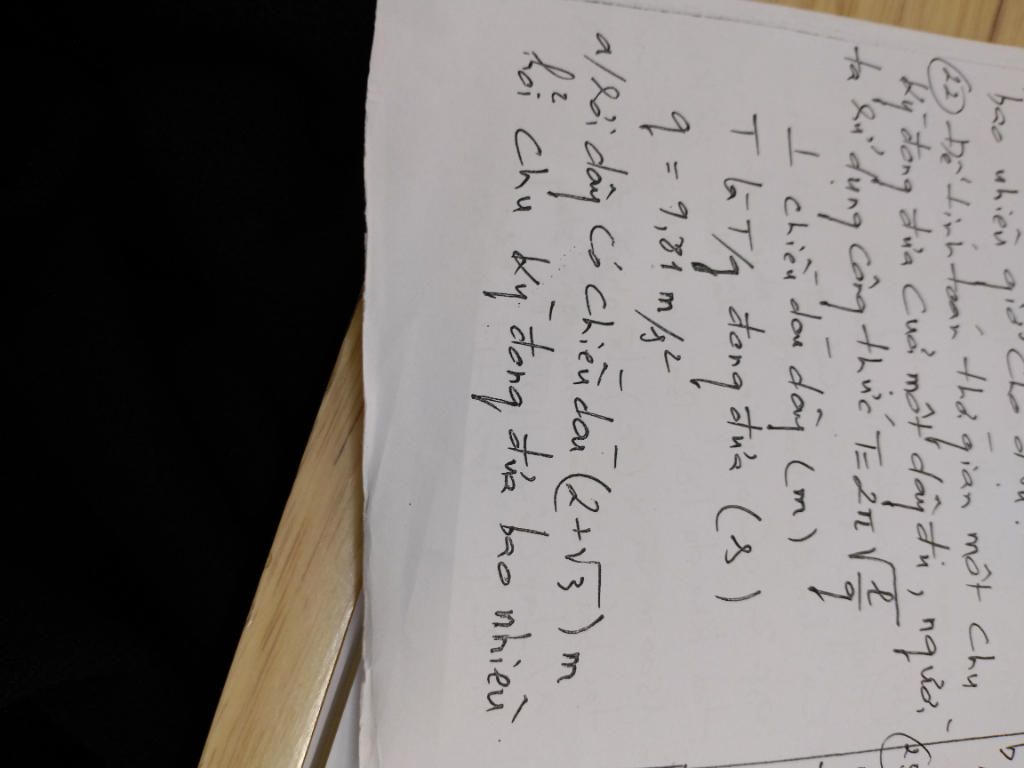 bao nhiêu giờ cho
22 Để tính toán thờ gian một chu
kỳ đong đưa Của một dây đu, người
ta sử dụng công thức T = 2π √(l/g)
l chiều dài dây (m)
T là T/g đong đưa (s)
g = 9,81 m/s²
a/ Sợi dây có chiều dài (2+√3) m
hỏi chu kỳ đong đưa bao nhiêu